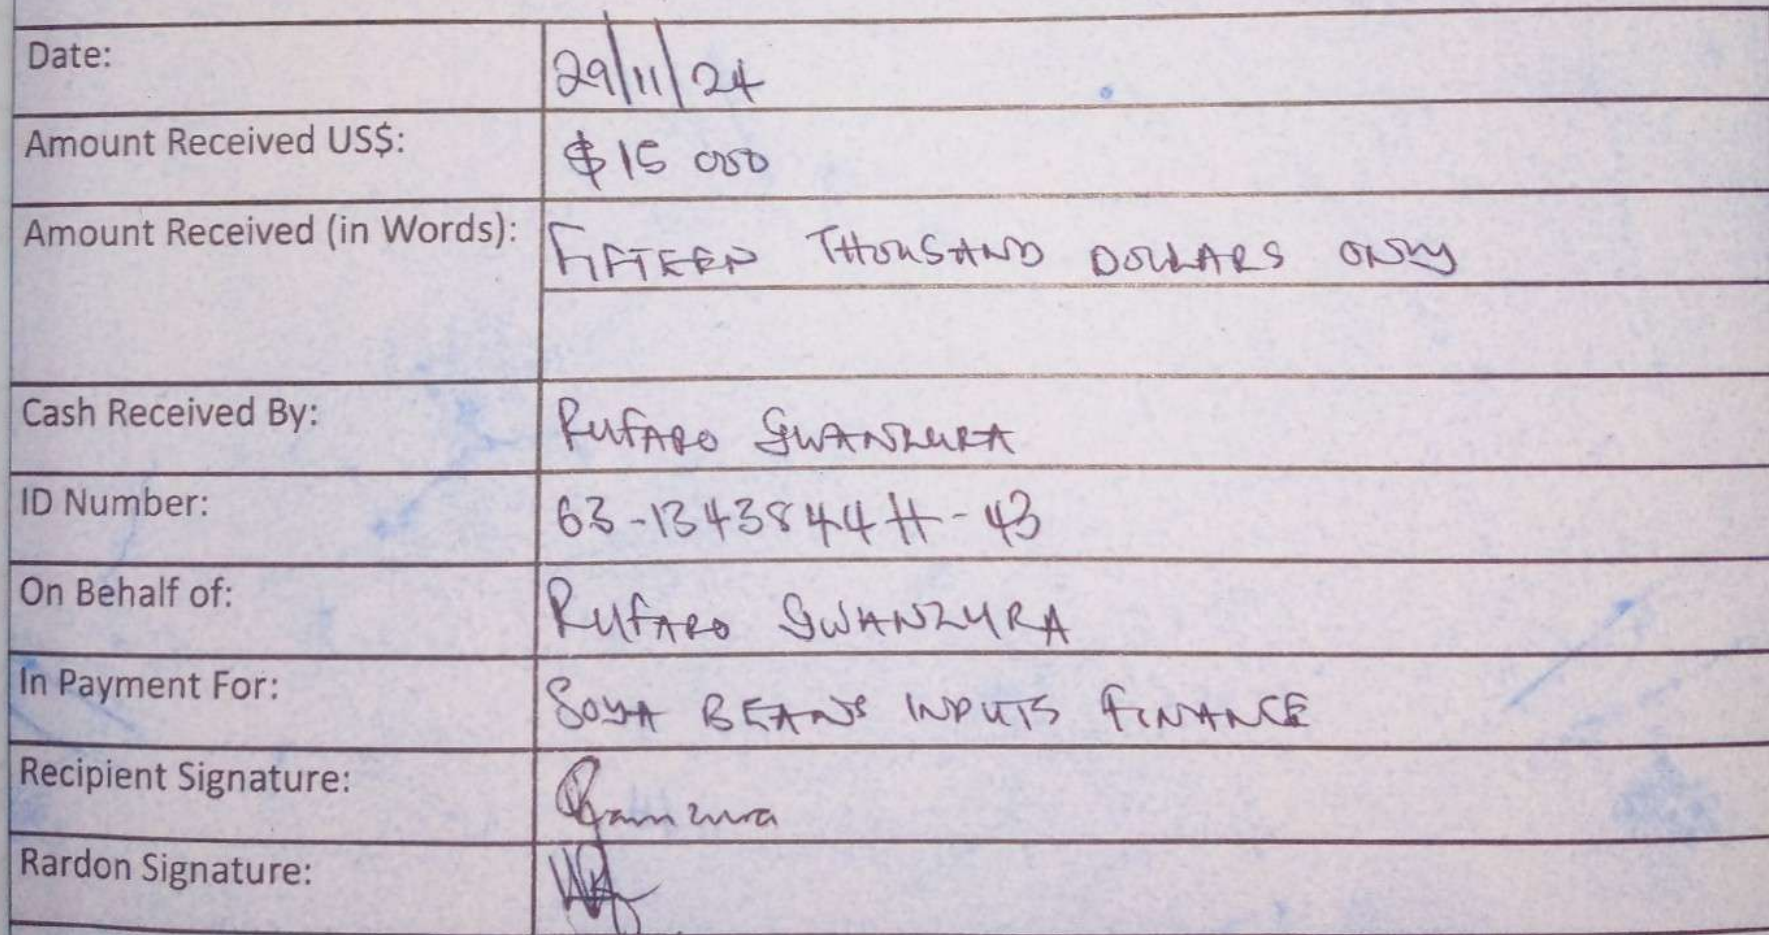 Date: 29/11/24
Amount Received US$: $15 000
Amount Received (in Words): FIFTEEN THOUSAND DOLLARS ONLY
Cash Received By: RUFARO GWANZURA
ID Number: 63-1343844 H-43
On Behalf of: RUFARO GWANZURA
In Payment For: SOYA BEANS INPUTS FINANCE
Recipient Signature:
Rardon Signature: